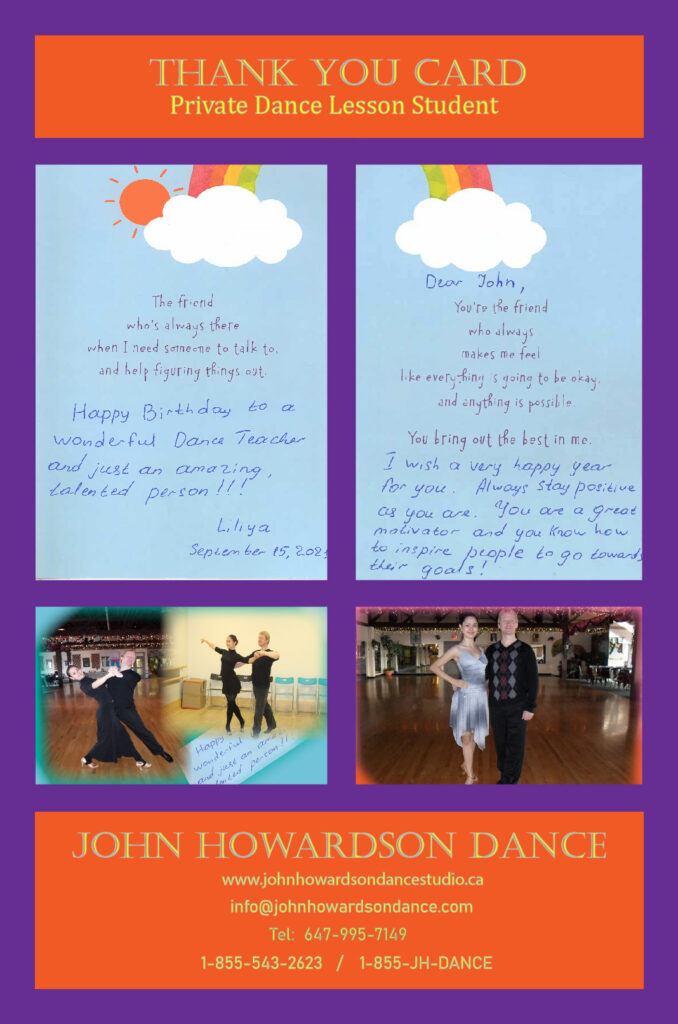 THANK YOU CARD
Private Dance Lesson Student
The friend
who's always there
when I need someone to talk to,
and help figuring things out.
Happy Birthday to a
wonderful Dance Teacher
and just an amazing,
talented person!!!
Liliya
September 15, 2021
Dear John,
You're the friend
who always
makes me feel
like everything is going to be okay,
and anything is possible.
You bring out the best in me.
I wish a very happy year
for you. Always stay positive
as you are. You are a great
motivator and you know how
to inspire people to go towards
their goals!
Happy
wonderful
and just an ama
lented person!!
JOHN HOWARDSON DANCE
www.johnhowardsondancestudio.ca
info@johnhowardsondance.com
Tel: 647-995-7149
1-855-543-2623 / 1-855-JH-DANCE